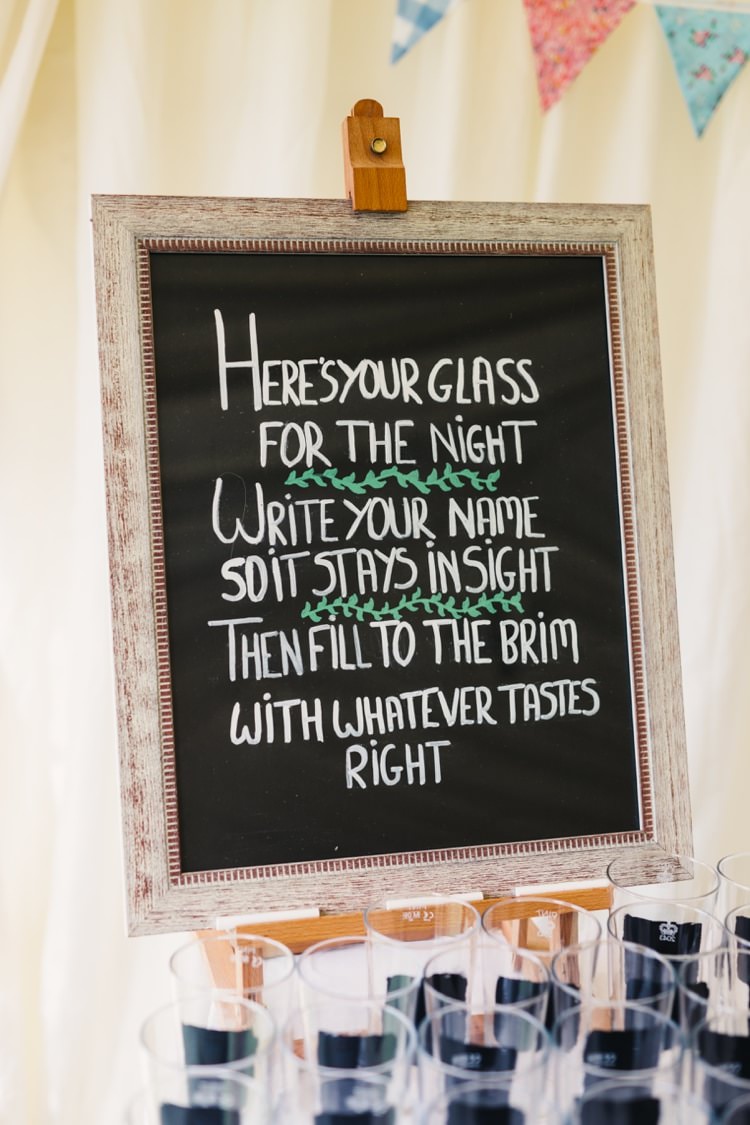 HERE'S YOUR GLASS
FOR THE NIGHT
WRITE YOUR NAME
SO IT STAYS IN SIGHT
THEN FILL TO THE BRIM
WITH WHATEVER TASTES
RIGHT